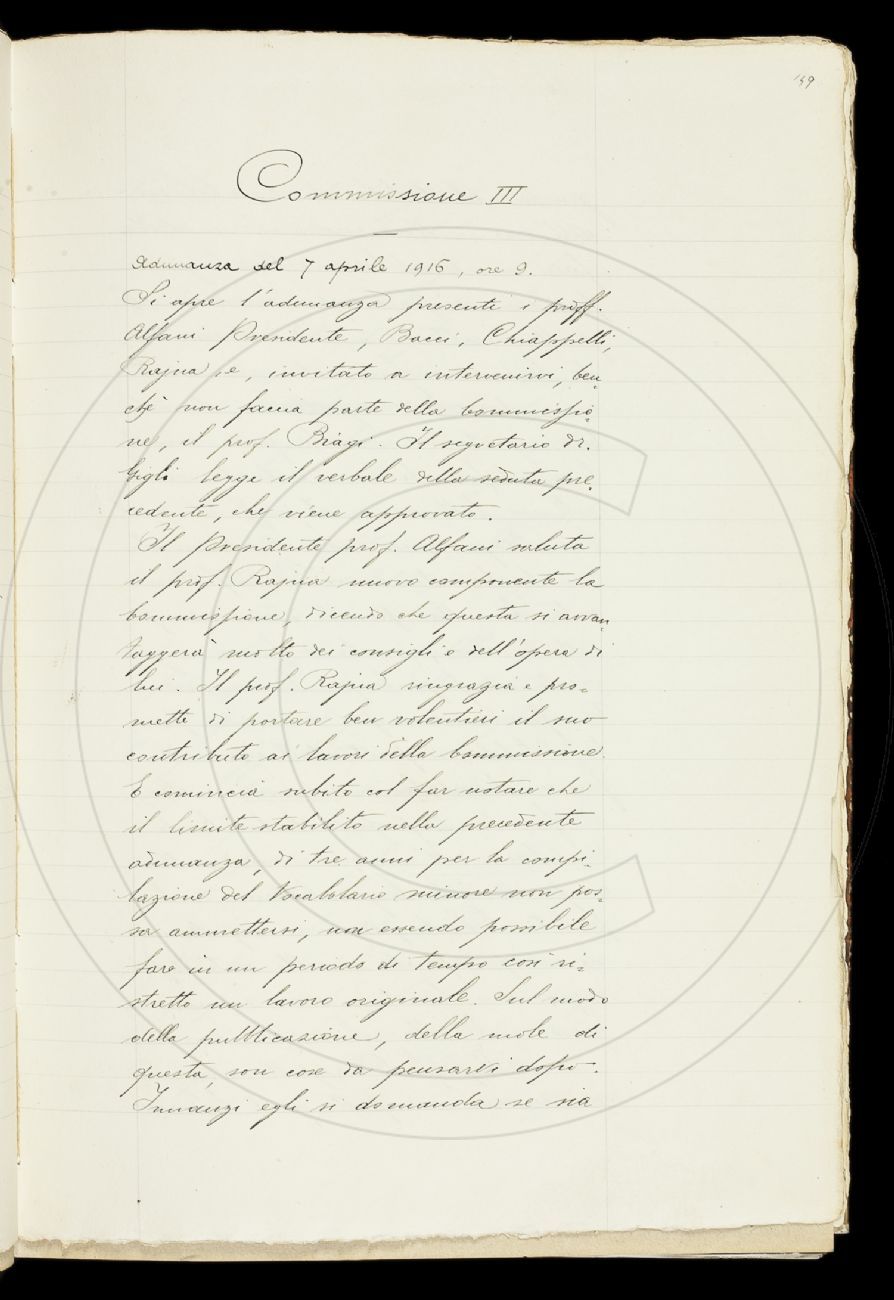 149
Commissione III
Adunanza del 7 aprile 1916, ore 9.
Si apre l'adunanza presenti i proff.
Alfani Presidente, Bacci, Chiappelli,
Rajna, e, invitato a intervenirvi, ben-
chè non faccia parte della Commissio-
ne, il prof. Biagi. Il segretario dr.
Gigli legge il verbale della seduta pre-
cedente, che viene approvato.
Il Presidente prof. Alfani saluta
il prof. Rajna nuovo componente la
Commissione, dicendo che questa si avvan-
taggerà molto dei consigli e dell'opera di
lui. Il prof. Rajna ringrazia e pro-
mette di portare ben volentieri il suo
contributo ai lavori della Commissione.
E comincia subito col far notare che
il limite stabilito nella precedente
adunanza, di tre anni per la compi-
lazione del Vocabolario minore non pos-
sa ammettersi, non essendo possibile
fare in un periodo di tempo così ri-
stretto un lavoro originale. Sul modo
della pubblicazione, della mole di
questa, son cose da pensarvi dopo.
Innanzi egli si domanda se sia